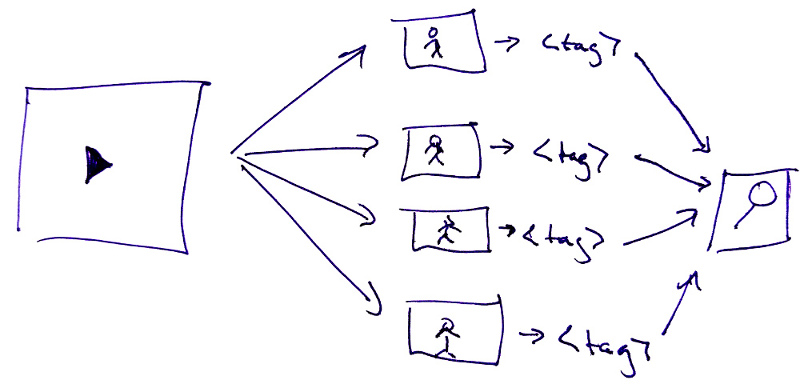 <tag>
<tag>
<tag>
<tag>